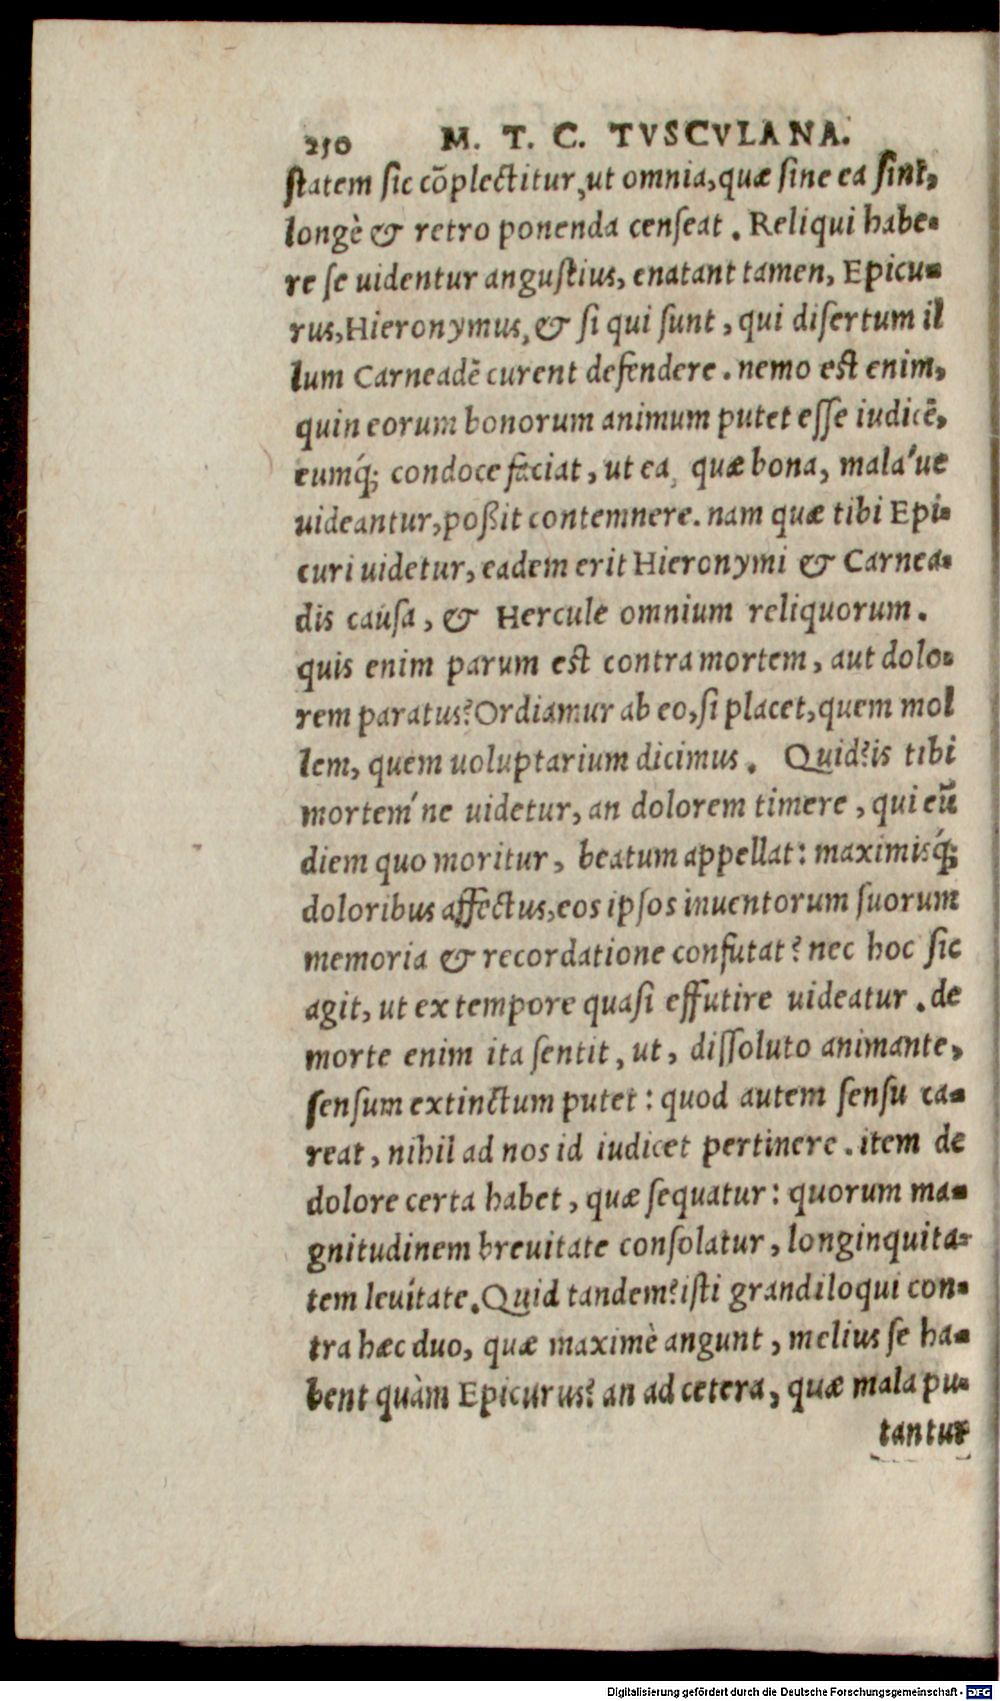 250 M. T. C. TVSCVLANA.
ſtatem ſic cōplectitur, ut omnia, quæ ſine ea ſint,
longè & retro ponenda cenſeat. Reliqui habe-
re ſe uidentur anguſtius, enatant tamen, Epicu-
rus, Hieronymus, & ſi qui ſunt, qui diſertum il
lum Carneadē curent defendere. nemo eſt enim,
quin eorum bonorum animum putet eſſe iudicē,
eumq́; condoce faciat, ut ea, quæ bona, mala'ue
uideantur, poßit contemnere. nam quæ tibi Epi-
curi uidetur, eadem erit Hieronymi & Carnea-
dis cauſa, & Hercule omnium reliquorum.
quis enim parum eſt contra mortem, aut dolo-
rem paratus? Ordiamur ab eo, ſi placet, quem mol
lem, quem uoluptarium dicimus. Quid? is tibi
mortem'ne uidetur, an dolorem timere, qui eū
diem quo moritur, beatum appellat: maximisq́;
doloribus affectus, eos ipſos inuentorum ſuorum
memoria & recordatione confutat? nec hoc ſic
agit, ut ex tempore quaſi effutire uideatur. de
morte enim ita ſentit, ut, diſſoluto animante,
ſenſum extinctum putet: quod autem ſenſu ca-
reat, nihil ad nos id iudicet pertinere. item de
dolore certa habet, quæ ſequatur: quorum ma-
gnitudinem breuitate conſolatur, longinquita-
tem leuitate. Quid tandem? iſti grandiloqui con-
tra hæc duo, quæ maximè angunt, melius ſe ha-
bent quàm Epicurus? an ad cetera, quæ mala pu-
tantur
Digitalisierung gefördert durch die Deutsche Forschungsgemeinschaft - DFG